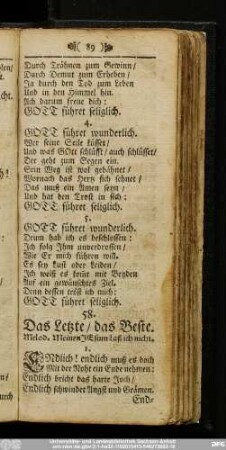 ( 89 )
Durch Trähnen zum Gewinn/
Durch Demut zum Erheben/
Ja durch den Tod zum Leben
Und in den Himmel hin.
Ach darum freue dich:
GOTT führet seliglich.
4.
GOTT führet wunderlich.
Wer seine Seile küsset/
Und was GOtt schlüsst/ auch schlüsset/
Der geht zum Segen ein.
Sein Weg ist wol gebähnet/
Wornach das Hertz sich sehnet/
Das muß ein Amen seyn/
Und hat den Trost in sich:
GOTT führet seliglich.
5.
GOTT führet wunderlich.
Drum hab ich es beschlossen:
Ich folg Ihm unverdrossen/
Wie Er mich führen will.
Es sey Lust oder Leiden/
Ich weiß es kömt mit Beyden
Auf ein gewünschtes Ziel.
Denn dessen tröst ich mich:
GOTT führet seliglich.
58.
Das Letzte/ das Beste.
Melod. Meinen JEsum laß ich nicht.
1.
ENdlich! endlich muß es doch
Mit der Noht ein Ende nehmen:
Endlich bricht das harte Joch/
Endlich schwindet Angst und Grämen.
End-